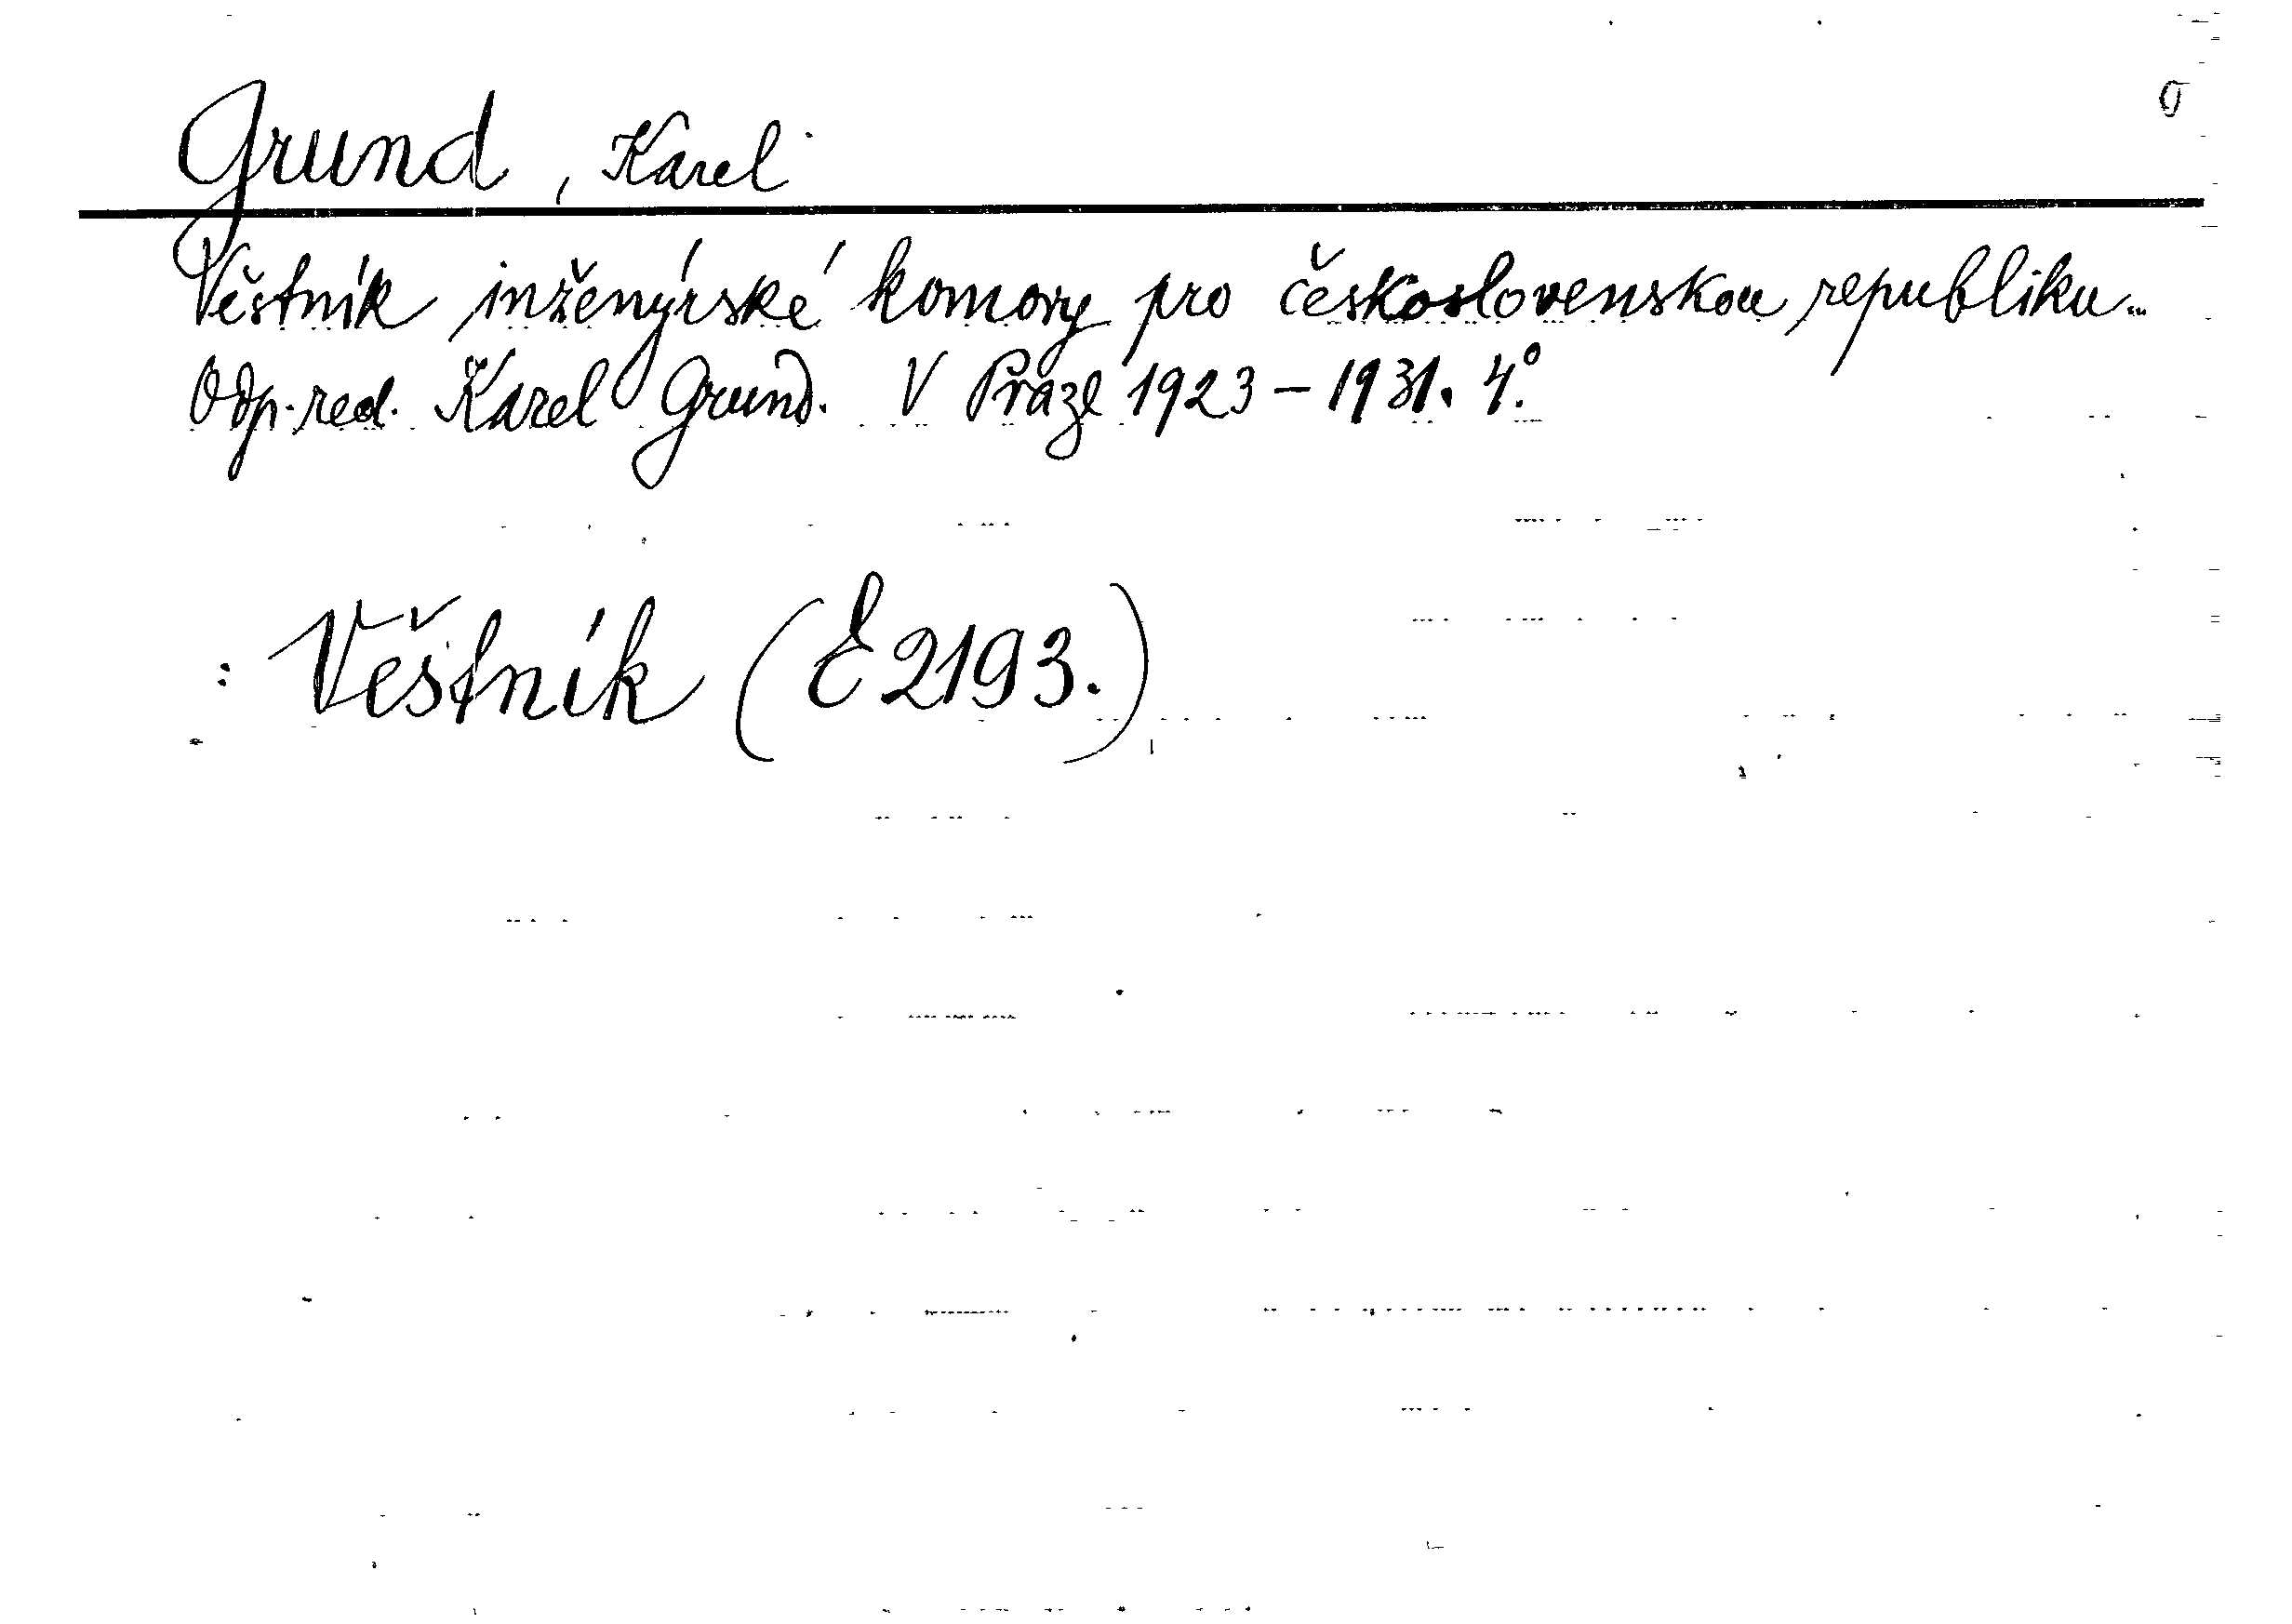 Grund, Karel
Věstník inženýrské komory pro československou republiku...
Odp. red. Karel Grund. V Praze 1923-1931. 4.°
: Věstník (E 2193.)